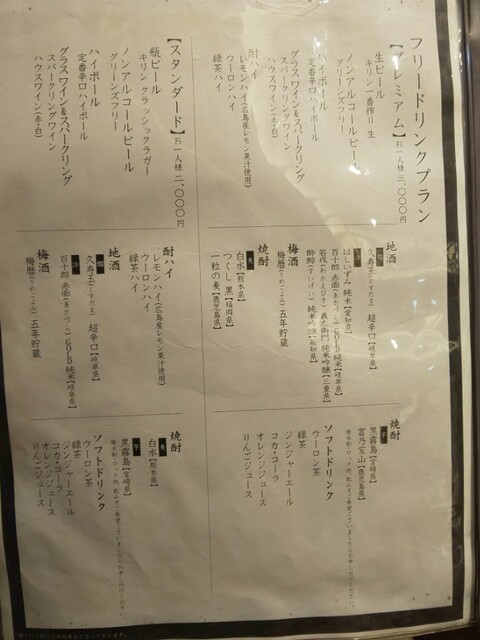 フリードリンクプラン
【プレミアム】お一人様 三、〇〇〇円
生ビール
キリン一番搾り 生
ノンアルコールビール
グリーンズフリー
ハイボール
定番辛口ハイボール
グラスワイン&スパークリング
スパークリングワイン
ハウスワイン(赤・白)
酎ハイ
レモンハイ(広島産レモン果汁使用)
ウーロンハイ
緑茶ハイ
地酒
久寿玉(くすだま) 超辛口【岐阜県】
百十郎 赤面(あかづら) GOLD 純米【岐阜県】
ほしいずみ 純米【愛知県】
酔鯨(すいげい) 純米吟醸【高知県】
梅酒
梅暦(うめごよみ) 五年貯蔵
焼酎
白水【熊本県】
つくし 黒【福岡県】
一粒の麦【鹿児島県】
焼酎
黒霧島【宮崎県】
富乃宝山【鹿児島県】
ソフトドリンク
ウーロン茶
緑茶
ジンジャーエール
コカ・コーラ
オレンジジュース
りんごジュース
【スタンダード】お一人様 二、〇〇〇円
瓶ビール
キリン クラシックラガー
ノンアルコールビール
グリーンズフリー
ハイボール
定番辛口ハイボール
グラスワイン&スパークリング
スパークリングワイン
ハウスワイン(赤・白)
酎ハイ
レモンハイ(広島産レモン果汁使用)
ウーロンハイ
緑茶ハイ
地酒
久寿玉(くすだま) 超辛口【岐阜県】
百十郎 赤面(あかづら) GOLD 純米【岐阜県】
梅酒
梅暦(うめごよみ) 五年貯蔵
焼酎
白水【熊本県】
黒霧島【宮崎県】
ソフトドリンク
ウーロン茶
緑茶
ジンジャーエール
コカ・コーラ
オレンジジュース
りんごジュース